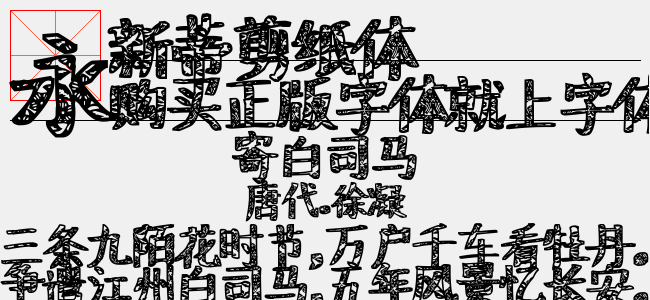 永
新蒂剪纸体
购买正版字体就上字体
寄白司马
唐代.徐凝
三条九陌花时节,万户千车看牡丹.
争遣江州白司马,五年风景忆长安.